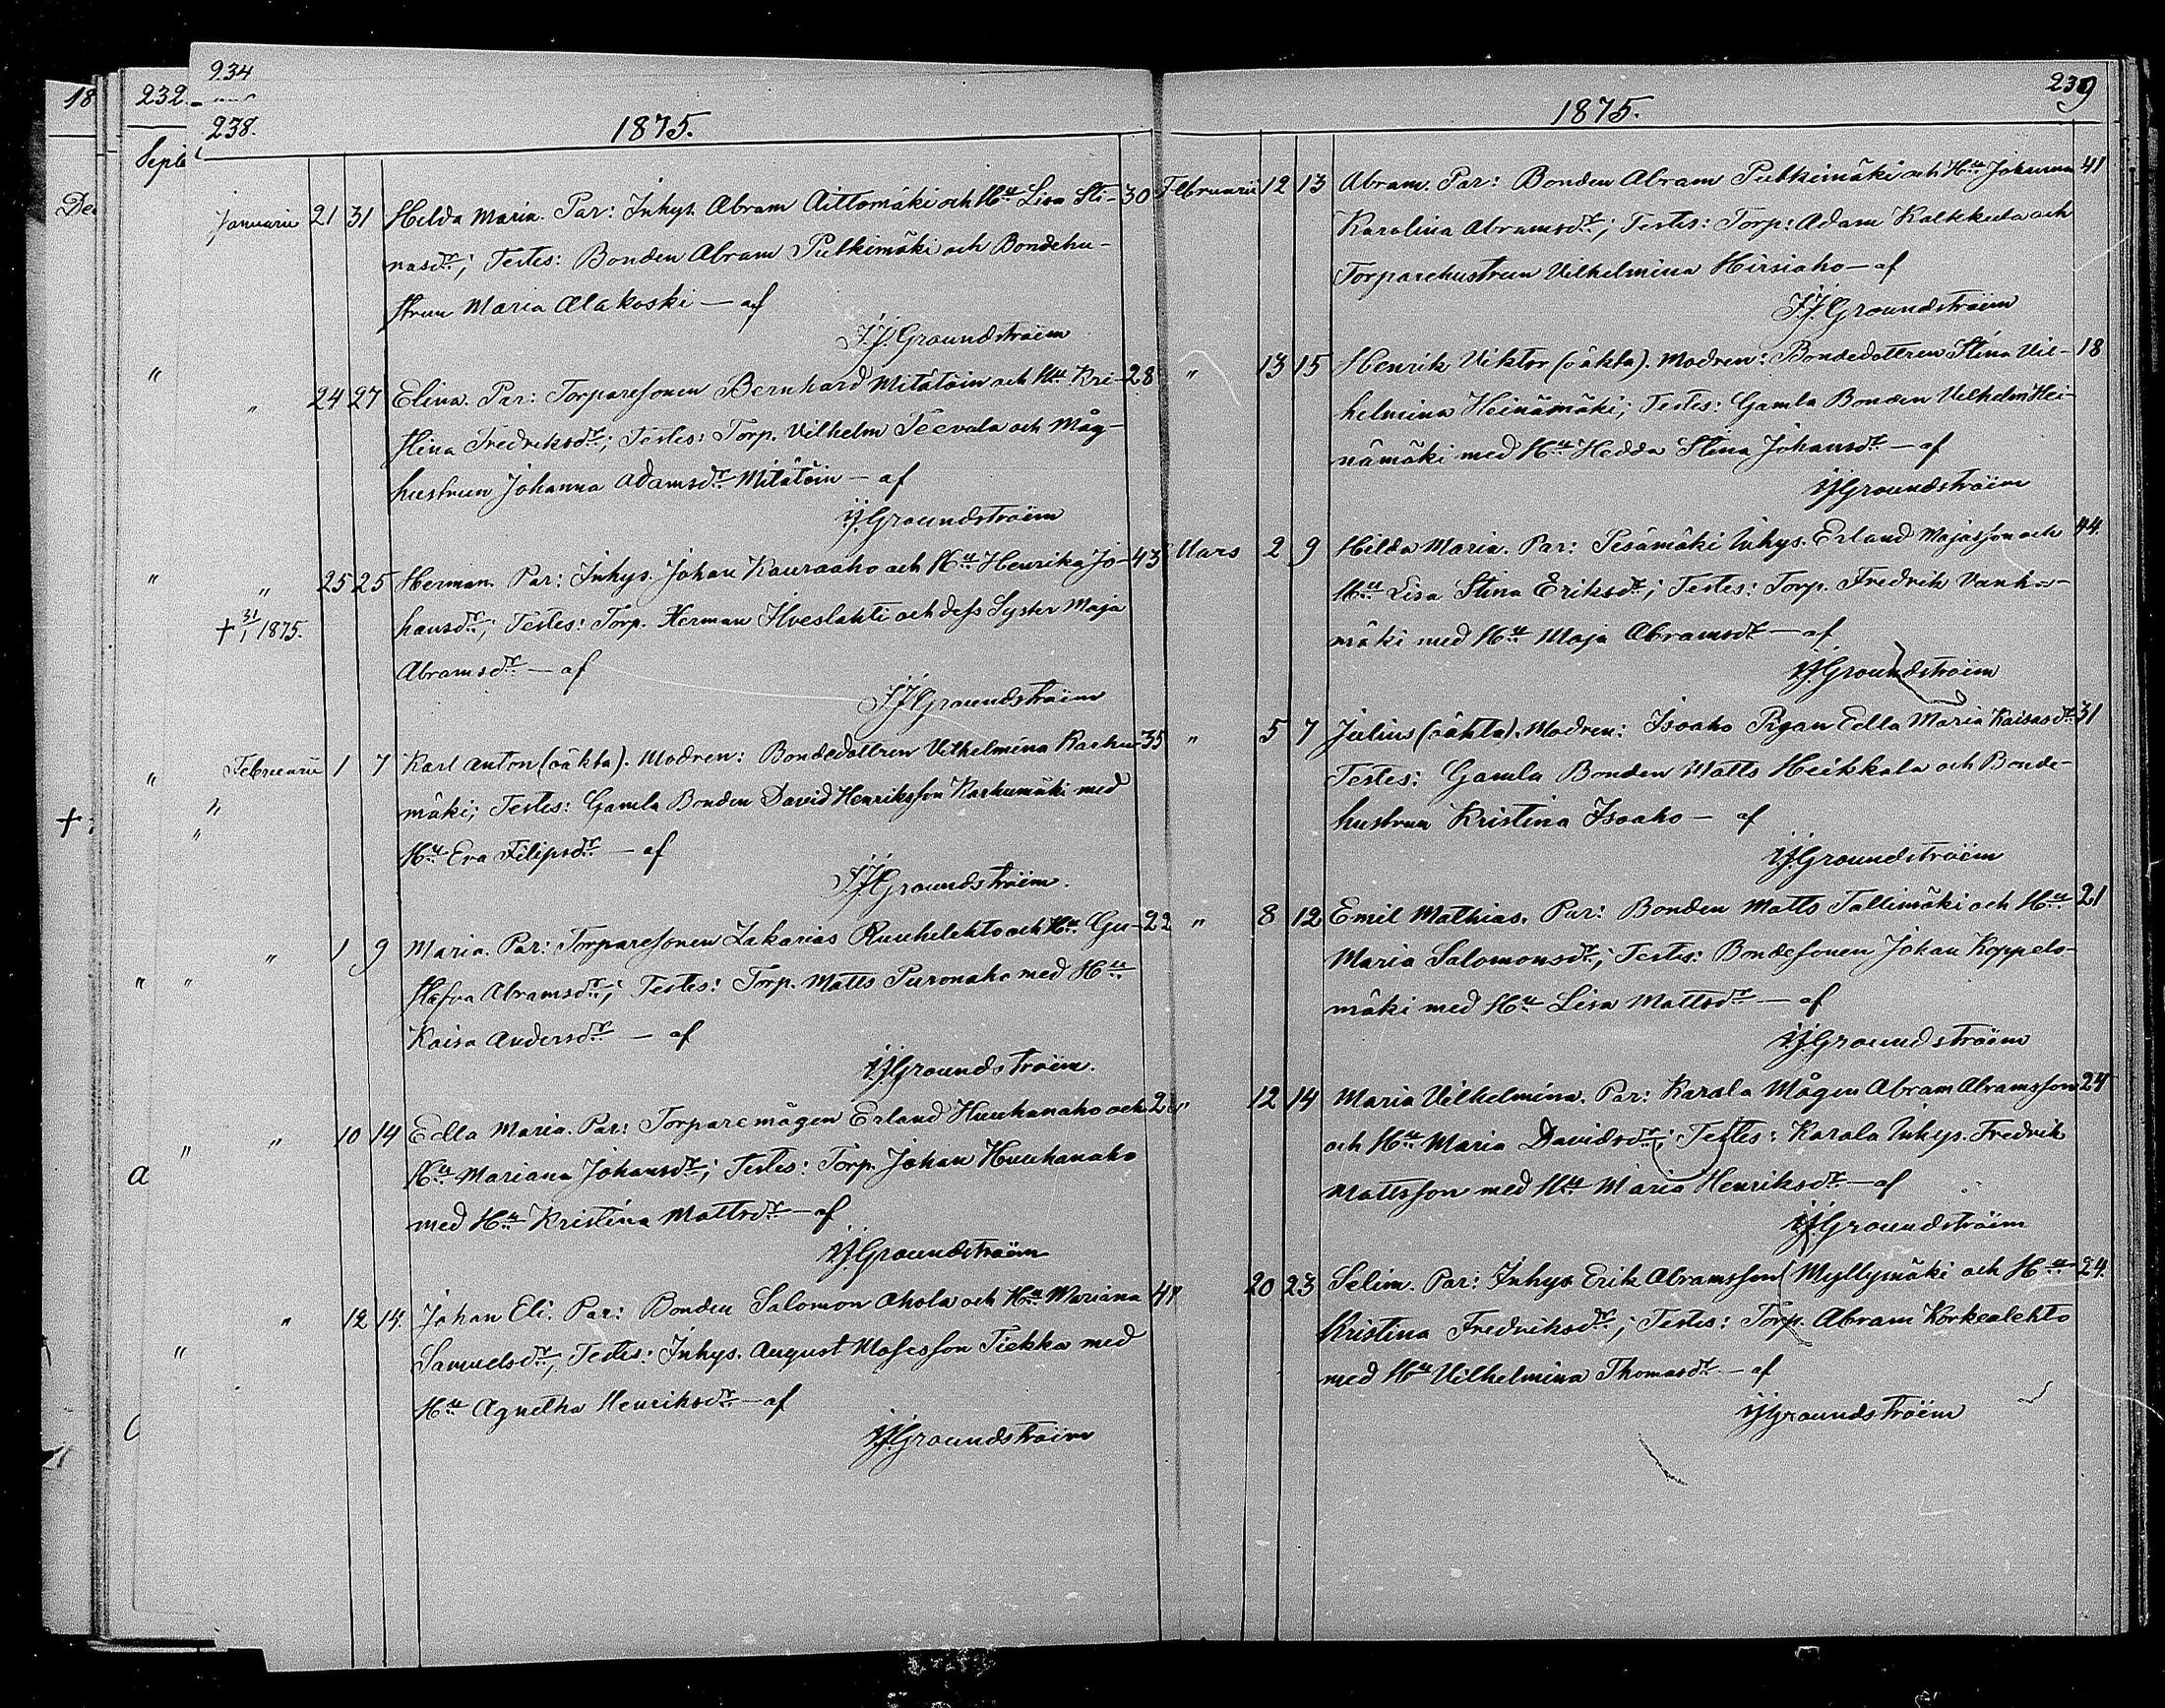 934
18
232.
238.
1875.
Septe
De
Januarii 21 31 Hilda Maria. Par: Inhys. Abram Aittomäki och Hu Lisa Sti- 30
nasdr; Testes: Bonden Abram Putkimäki och Bondehu-
strun Maria Alakoski — af
J.J. Groundstroïm
" 24 27 Elina. Par: Torparesonen Bernhard Mitätöin och Hu Kri- 28
stina Fredriksdr; Testes: Torp. Vilhelm Teevala och Måg-
hustrun Johanna Adamsdr Mitätöin — af
J.J. Groundstroïm
" 25 25 Herman. Par: Inhys. Johan Kauraaho och Hu Henrika Jo- 43
+ 31/1 1875. hansdr; Testes: Torp. Herman Ilveslahti och dess Syster Maja
Abramsdr — af
J.J. Groundstroïm
Februarii 1 7 Karl Anton (oäkta). Modren: Bondedottren Vilhelmina Karhu- 35
mäki; Testes: Gamla Bonden David Henriksson Karhumäki med
Hu Eva Filipsdr — af
J.J. Groundstroïm.
" 1 9 Maria. Par: Torparesonen Zakarias Ruuhilehto och Hu Gu- 22
stafva Abramsdr; Testes: Torp. Matts Puronaho med Hu
Kaisa Andersdr — af
J.J. Groundstroïm.
" 10 14 Edla Maria. Par: Torparemågen Erland Huuhanaho och
Hu Mariana Johansdr; Testes: Torp. Johan Huuhanaho
med Hu Kristina Mattsdr — af
J.J. Groundstroïm
" 12 14. Johan Eli. Par: Bonden Salomon Ahola och Hu Mariana
Samuelsdr; Testes: Inhys. August Mosesson Tiekka med
Hu Agnetha Henriksdr — af
J.J. Groundstroïm
239
1875.
Februarii 12 13 Abram. Par: Bonden Abram Putkimäki och Hu Johanna 41
Karolina Abramsdr; Testes: Torp: Adam Kalkkula och
Torparehustrun Vilhelmina Hirsiaho — af
J.J. Groundstroïm
" 13 15 Henrik Viktor (oäkta). Modren: Bondedottren Stina Vil- 18
helmina Heinämäki; Testes: Gamla Bonden Vilhelm Hei-
nämäki med Hu Hedda Stina Johansdr — af
J.J. Groundstroïm
Mars 2 9 Hilda Maria. Par: Pesämäki Inhys. Erland Majasson och 44.
Hu Lisa Stina Eriksdr; Testes: Torp. Fredrik Vanha-
mäki med Hu Maja Abramsdr — af
J.J. Groundstroïm
" 5 7 Julius (oäkta). Modren: Isoaho Pigan Edla Maria Kaisasdr 31
Testes: Gamla Bonden Matts Heikkala och Bonde-
hustrun Kristina Isoaho — af
J.J. Groundstroïm
" 8 12 Emil Mathias. Par: Bonden Matts Tallimäki och Hu 21
Maria Salomonsdr; Testes: Bondesonen Johan Koppelo-
mäki med Hu Lisa Mattsdr — af
J.J. Groundstroïm
" 12 14 Maria Vilhelmina. Par: Karala Mågen Abram Abramsson 24
och Hu Maria Davidsdr; Testes: Karala Inhys. Fredrik
Mattsson med Hu Maria Henriksdr — af
J.J. Groundstroïm
20 23 Selim. Par: Inhys Erik Abramsson Myllymäki och Hu 24.
Kristina Fredriksdr; Testes: Torp. Abram Korkealehto
med Hu Vilhelmina Thomasdr — af
J.J. Groundstroïm